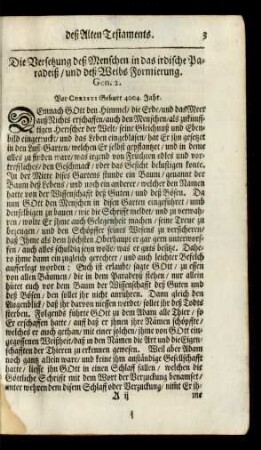 deß Alten Testaments. 3
Die Versetzung deß Menschen in das irdische Pa-
radeiß / und deß Weibs Formierung.
Gen. 2.
Vor CHRISTI Geburt 4004. Jahr.
DEmnach GOtt den Himmel / die Erde / und das Meer
auß Nichts erschaffen / auch den Menschen / als zukünff-
tigen Herrscher der Welt / seine Gleichnuß und Eben-
bild eingeruckt / und das Leben eingeblasen / hat Er ihn gesetzt
in den Lust-Garten / welchen Er selbst gepflantzet / und in deme
alles zu finden ware / was irgend von Früchten edles und vor-
treffliches / den Geschmack / oder das Gesicht belustigen konte.
In der Mitte dises Gartens stunde ein Baum / genannt der
Baum deß Lebens / und noch ein anderer / welcher den Namen
hatte von der Wissenschafft deß Guten / und deß Bösen. Da
nun GOtt den Menschen in disen Garten eingeführet / umb
denselbigen zu bauen / wie die Schrifft meldet / und zu verwah-
ren / wolte Er ihme auch Gelegenheit machen / seine Treu zu
bezeugen / und den Schöpffer seines Wesens zu versicheren /
daß Jhme als dem höchsten Oberhaupt er gar gern unterworf-
fen / auch alles schuldig seyn wolle / was er guts besitze. Dahe-
ro ihme dann ein zugleich gerechter / und auch leichter Befelch
aufferlegt worden: Euch ist erlaubt / sagte GOtt / zu essen
von allen Bäumen / die in dem Paradeyß stehen / nur allein
hütet euch vor dem Baum der Wissenschafft deß Guten und
deß Bösen / den sollet ihr nicht anrühren. Dann gleich den
Augenblick / daß ihr darvon niessen werdet / sollet ihr deß Todts
sterben. Folgends führte GOtt zu dem Adam alle Thier / so
Er erschaffen hatte / auf daß er ihnen ihre Nämen schöpffte /
welches er auch gethan / mit einer solchen / ihme von GOtt ein-
gegossenen Weißheit / daß in den Nämen die Art und die Eigen-
schafften der Thieren zu erkennen gewesen. Weil aber Adam
noch gantz allein ware / und keine ihm anständige Gesellschafft
hatte / liesse ihn GOtt in einen Schlaf fallen / welchen die
Göttliche Schrifft mit dem Wort der Verzuckung benamset /
unter währen dem disem Schlaf / oder Verzuckung / nimt Er ih-
A ij me